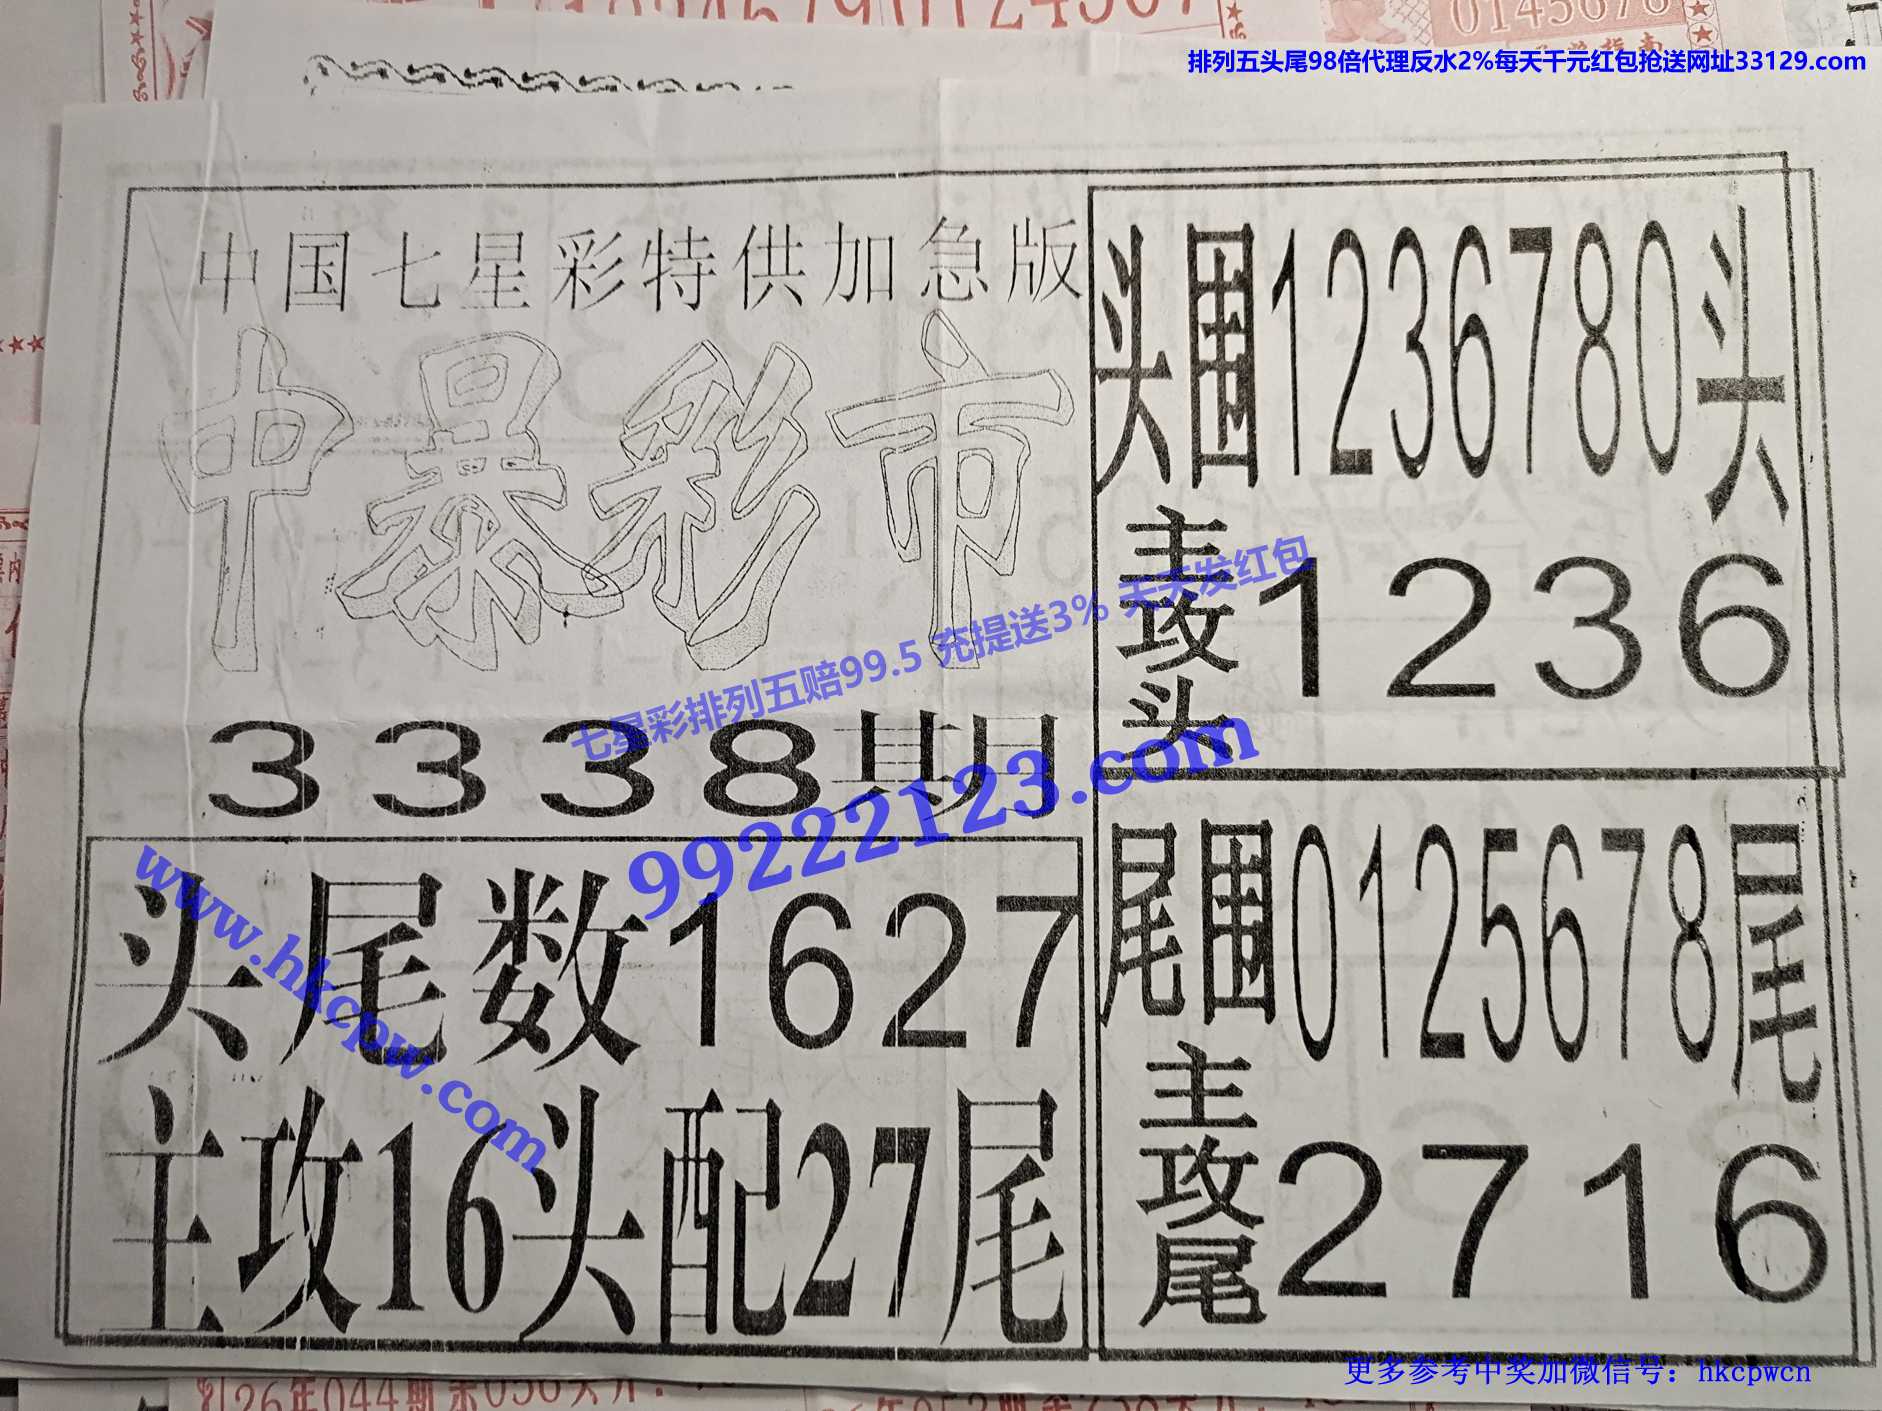 0145678
排列五头尾98倍代理反水2%每天千元红包抢送网址33129.com
中国七星彩特供加急版
中暴彩市
3338期
头围1236780头
主攻头1236
七星彩排列五赔99.5 充提送3% 天天发红包
99222123.com
www.hkcpw.com
头尾数1627
主攻16头配27尾
尾围0125678尾
主攻尾2716
更多参考中奖加微信号：hkcpwcn